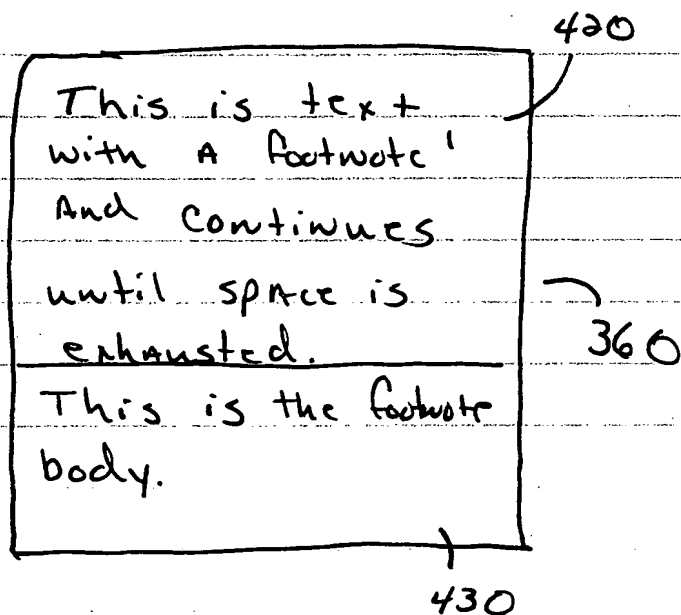 420
This is text
with A footnote 1
And continues
until space is
exhausted.
360
This is the footnote
body.
430